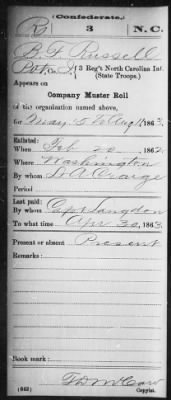 (Confederate.)
R 3 N.C.
B F Russell
Pvt, Co. 3 Reg't North Carolina Inf.
(State Troops.)
Appears on
Company Muster Roll
of the organization named above,
for May & to Aug 1863.
Enlisted:
When Feb 20, 1862.
Where Washington
By whom Craige
Period
Last paid:
By whom Capt Langdon
To what time Apr 30, 1863.
Present or absent Present
Remarks:
Book mark:
(642) Copyist.